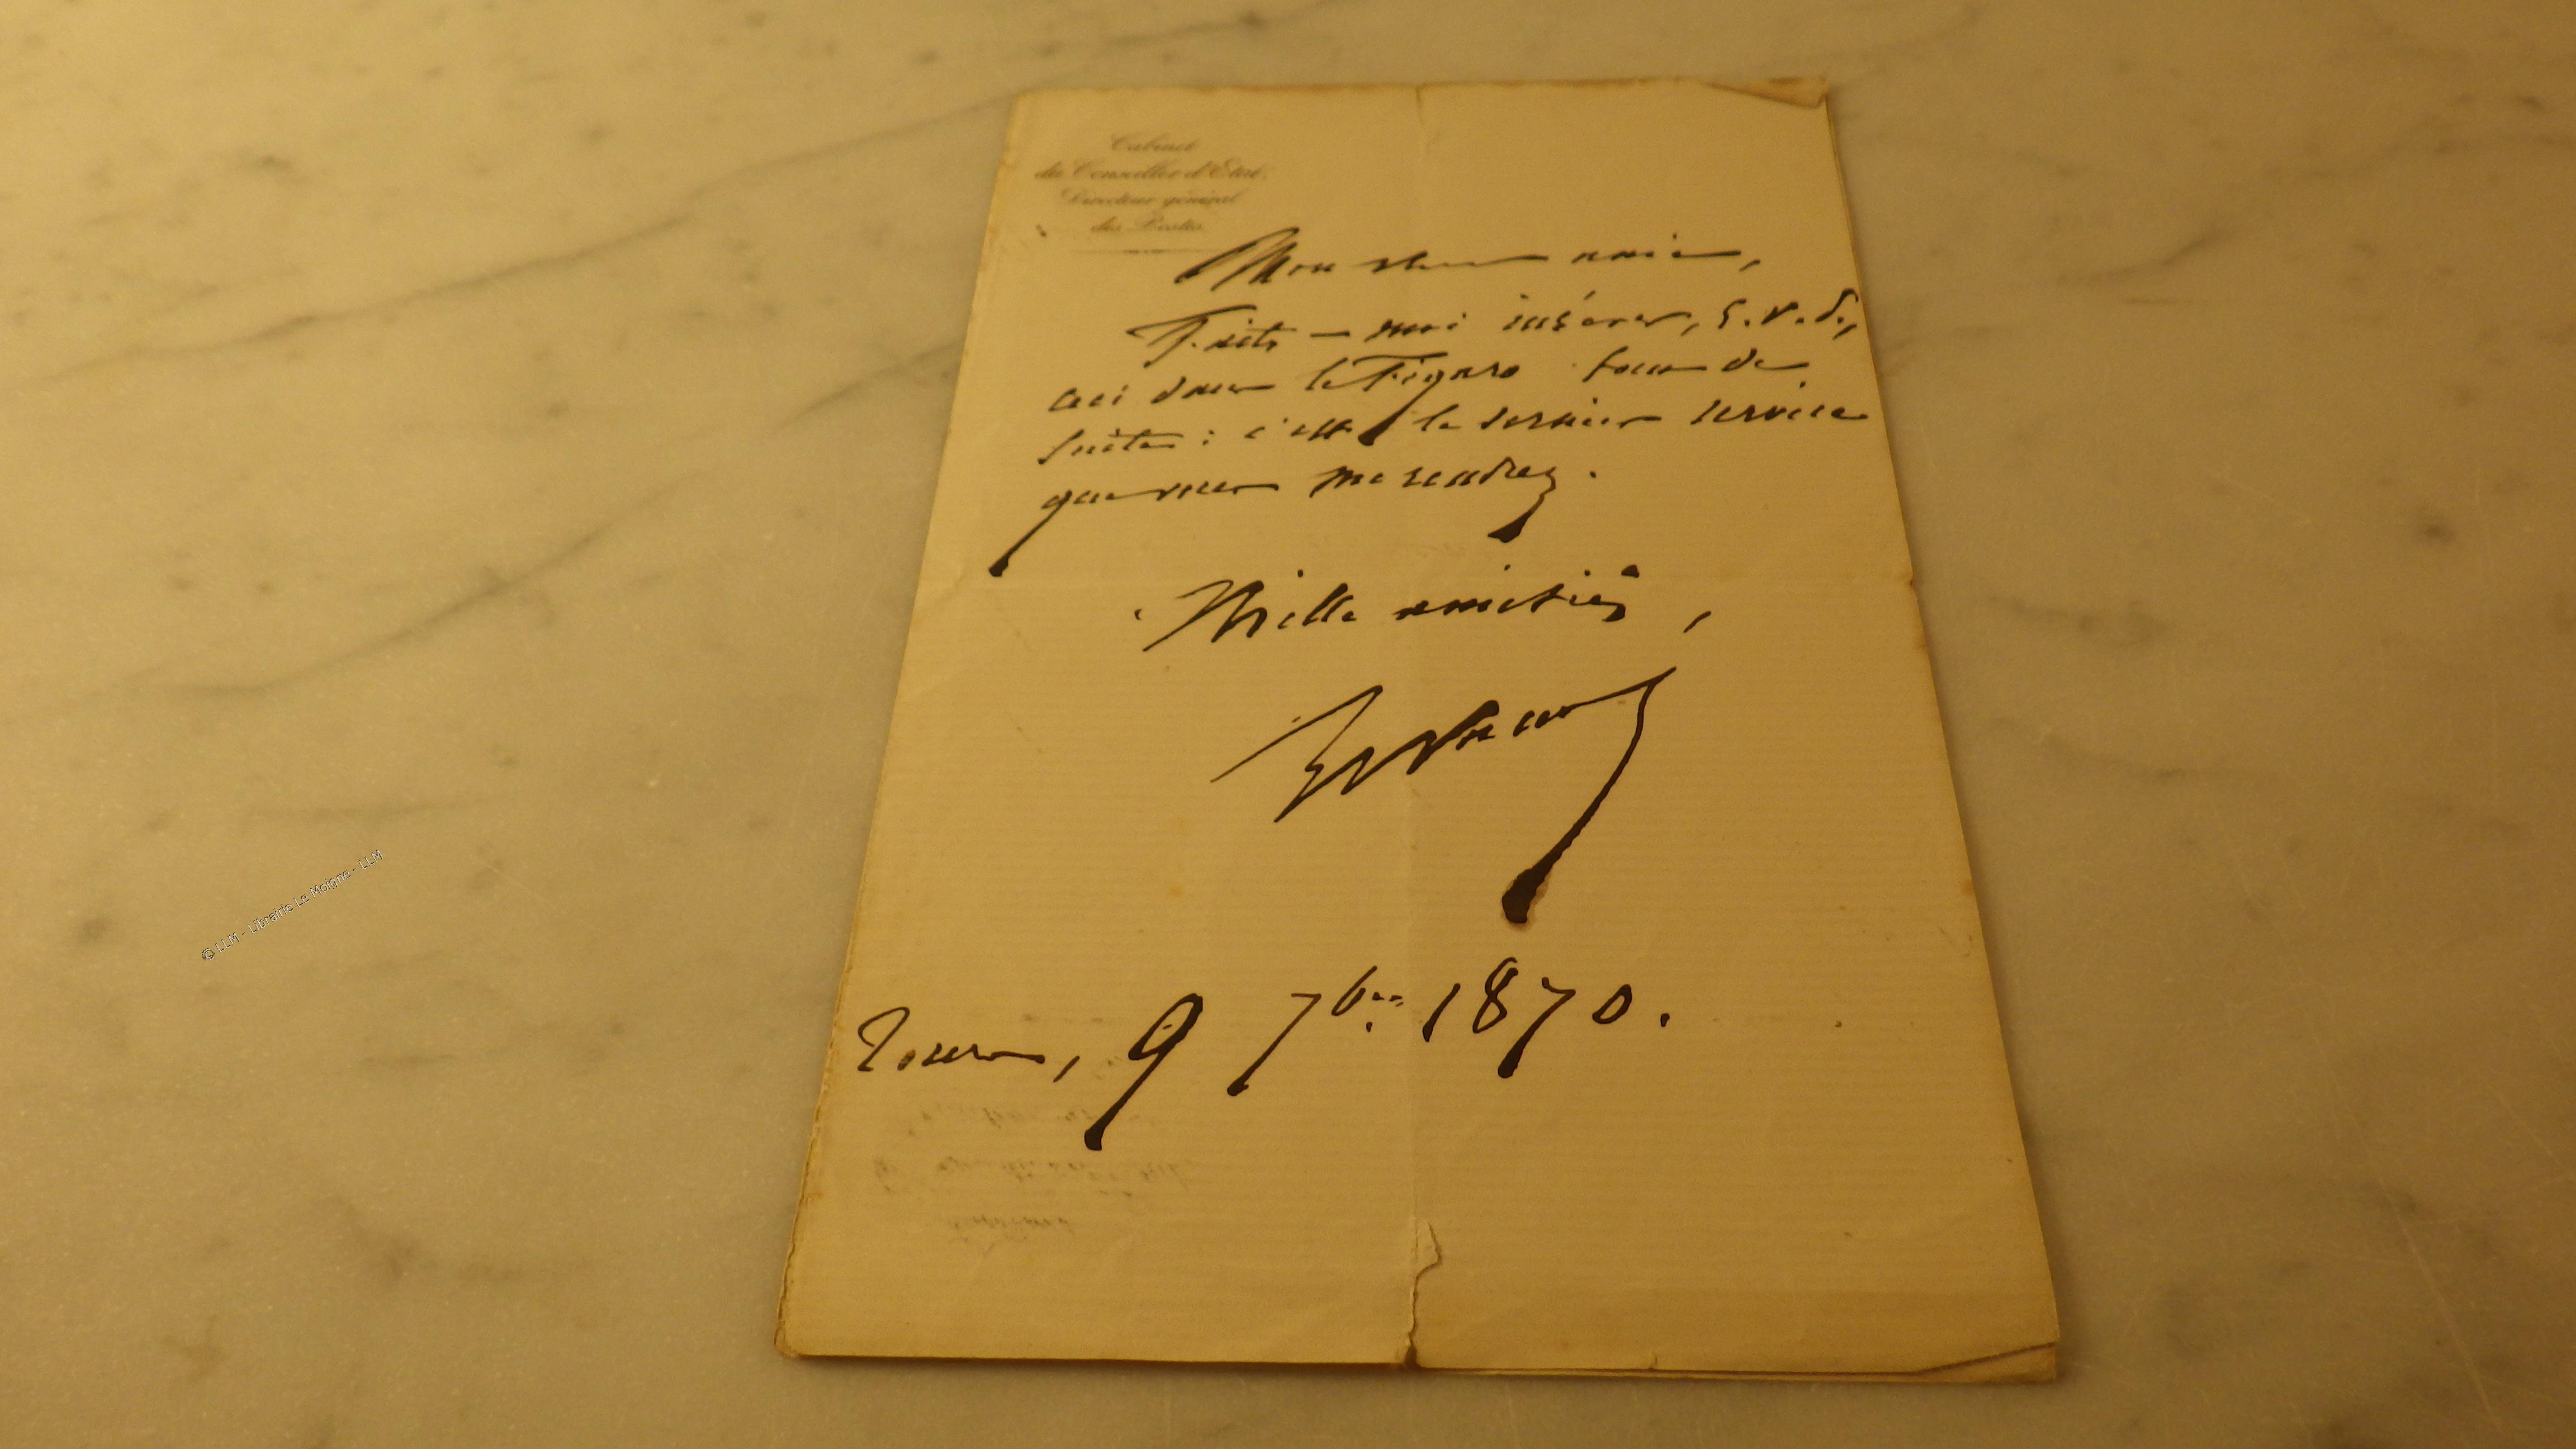 Cabinet
du Conseiller d'Etat,
Directeur général
des Postes
Mon cher ami,
Faites-moi insérer, s.v.p.,
ceci dans le Figaro tout de
suite : c'est le dernier service
que vous me rendrez.
Mille amitiés,
Tours, 9 7bre 1870.
© LLM - Librairie Le Moigne - LLM